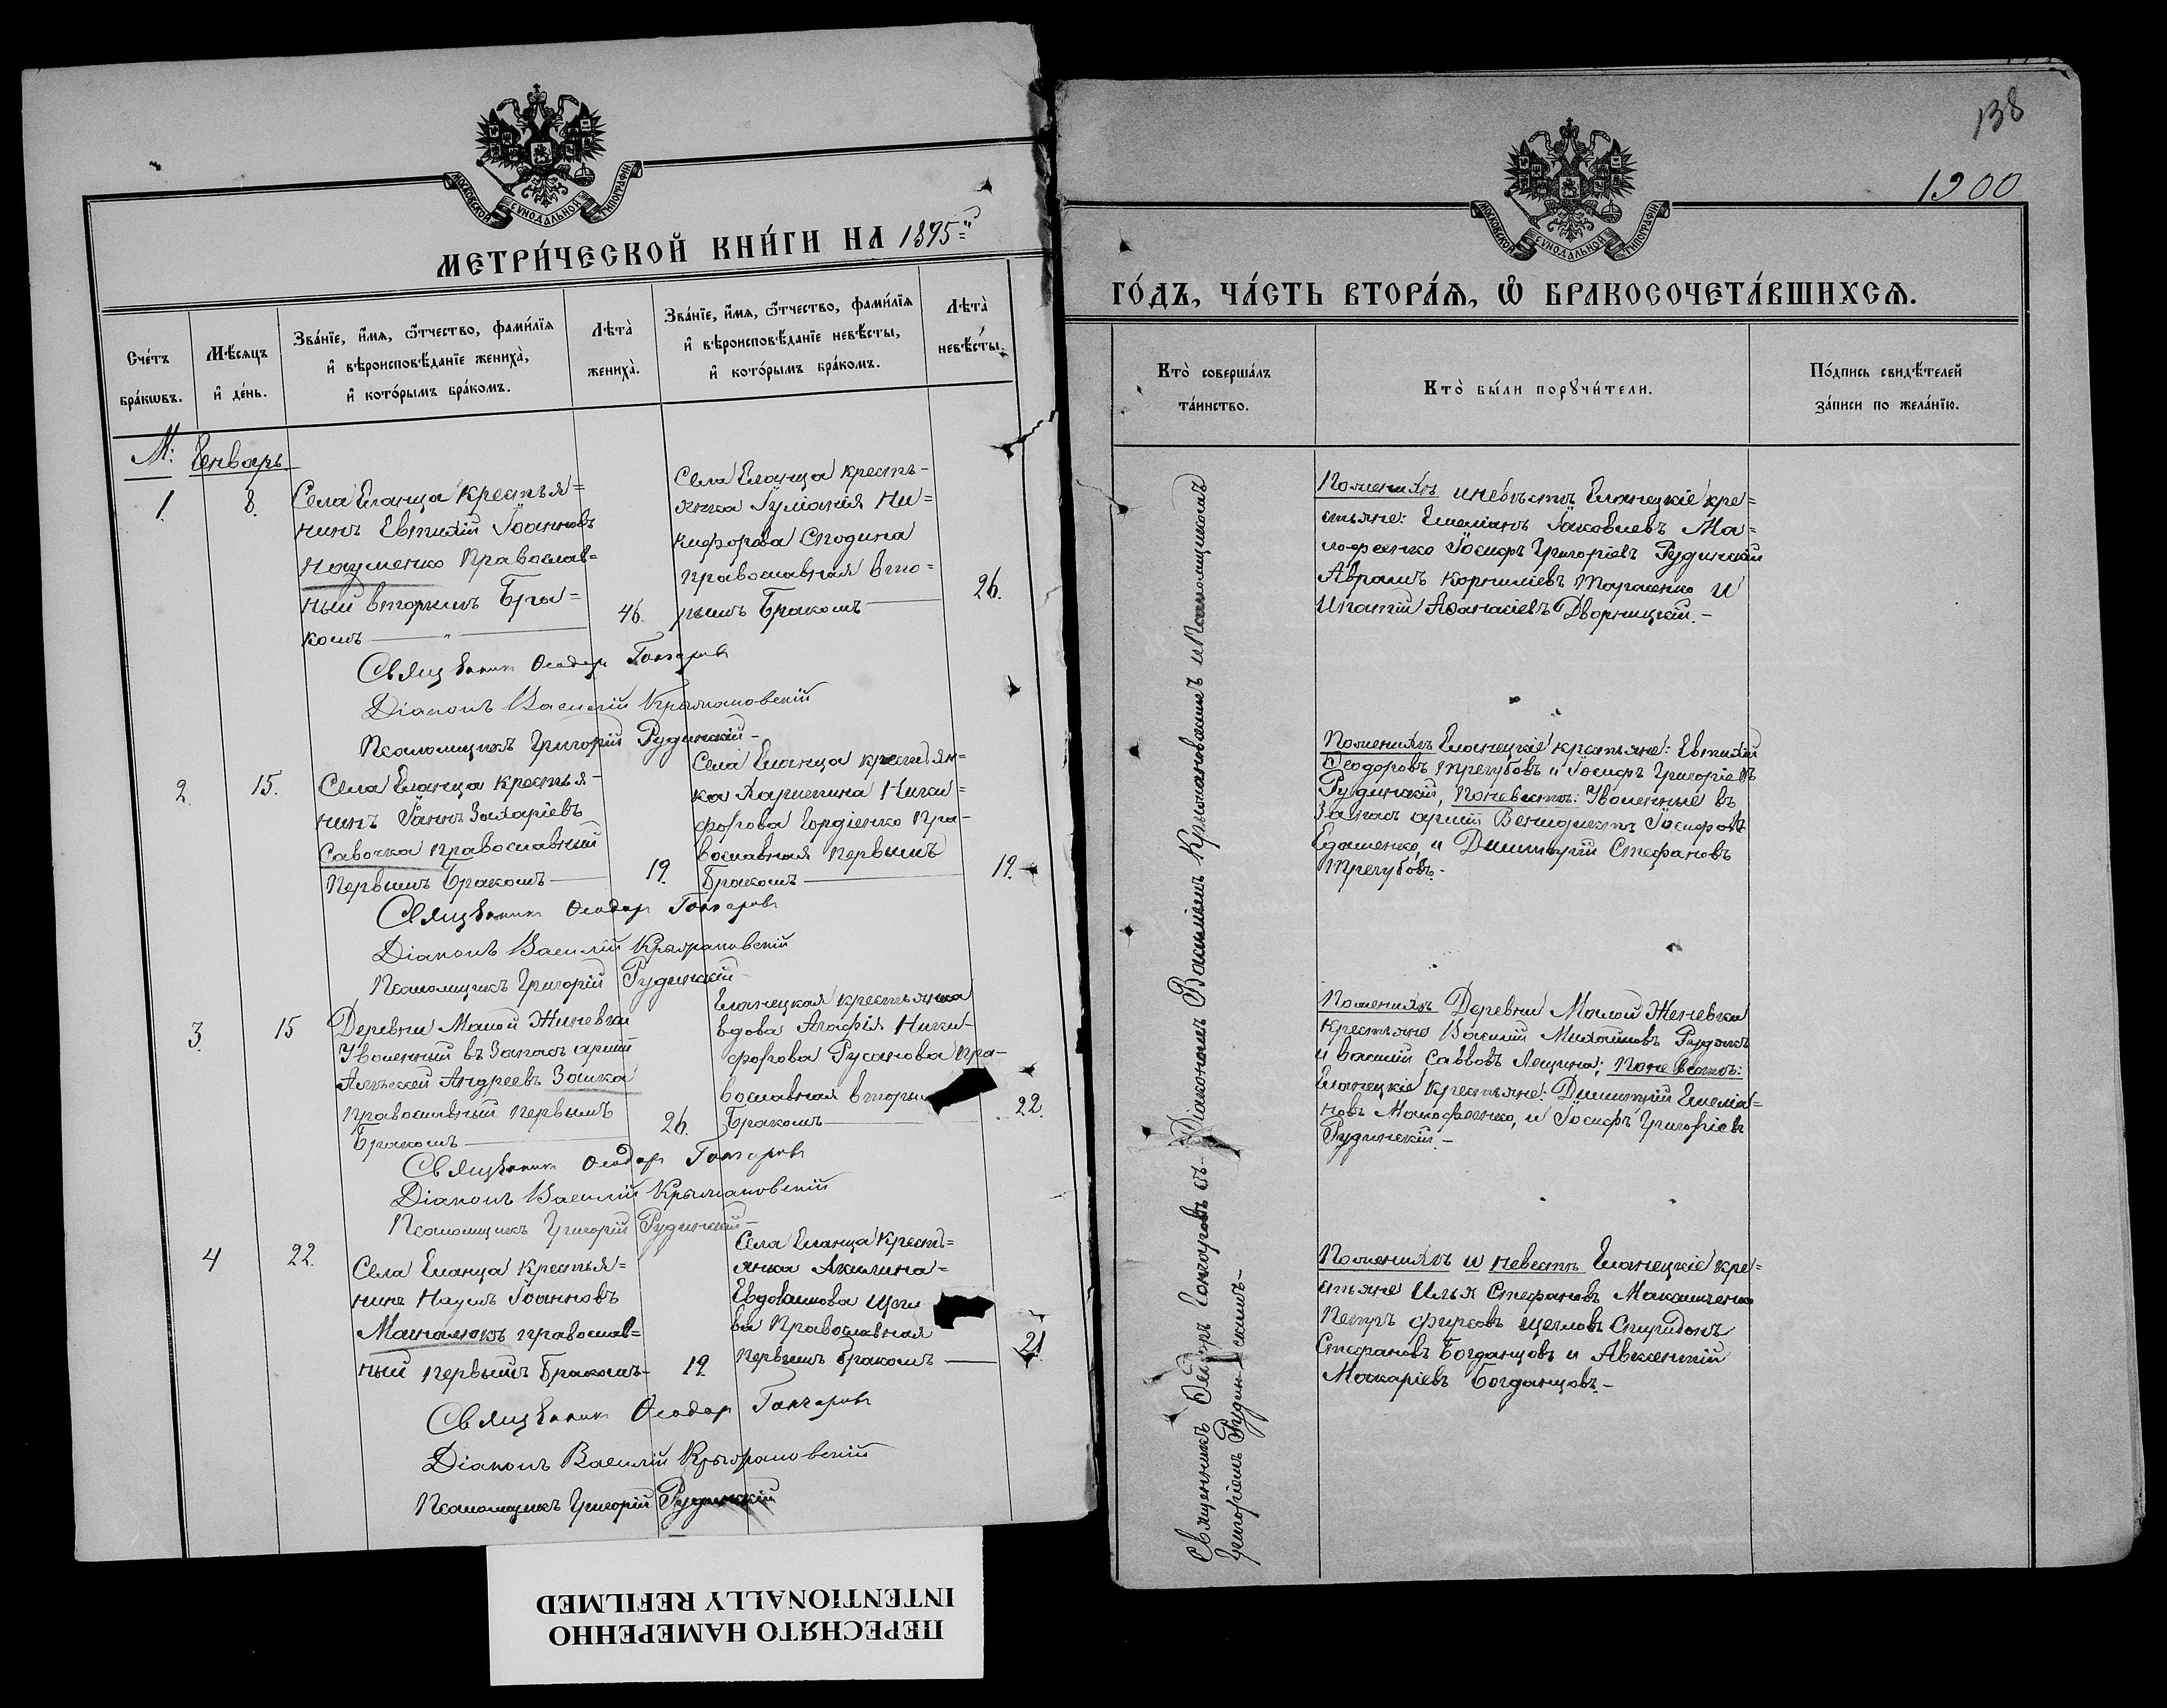 МОСКОВСКОЙ СУНОДАЛЬНОЙ ТИПОГРАФІИ
МЕТРИ́ЧЕСКОЙ КНИ́ГИ НА 1895=й
Сче́тъ бра́кѡвъ.
Мѣ́сяцъ и҆ де́нь.
Зва́нїе, и҆́мѧ, ѻ҆́тчество, фами́лїѧ
и҆ вѣроисповѣ́данїе жениха̀,
и҆ кото́рымъ бра́комъ.
Лѣта̀ жениха̀.
Зва́нїе, и҆́мѧ, ѻ҆́тчество, фами́лїѧ
и҆ вѣроисповѣ́данїе невѣ́сты,
и҆ кото́рымъ бра́комъ.
Лѣта̀ невѣ́сты.
М: Генварь
1.
8.
Села Еланца Крестья=
нинъ Евтихій Іоанновъ
Науменко Православ=
ный вторымъ Бра=
комъ
46.
Села Еланца кресть-
янка Іуліанія Ни=
кифорова Сподина
православная вто=
рымъ Бракомъ
26.
Священникъ Ѳеодоръ Гончаровъ
Діаконъ Василій Крыжановскій
Псаломщикъ Григорій Рудинскій-
2.
15.
Села Еланца крестья-
нинъ Іоаннъ Захаріевъ
Савочка православный
первымъ Бракомъ
19.
Села Еланца крестьян-
ка Харитина Ники=
форова Гордіенко Пра-
вославная первымъ
Бракомъ
19.
Священникъ Ѳеодоръ Гончаровъ
Діаконъ Василій Крыжановскій
Псаломщикъ Григорій Рудинскій
3.
15
Деревни Малой Женевки
Уволенный въ Запасъ арміи
Алексей Андреевъ Заика
православный первымъ
Бракомъ
26.
Еланецкая крестьянка
вдова Агафія Ники-
форова Русанова пра-
вославная вторы
Бракомъ
22.
Священникъ Ѳеодоръ Гончаровъ
Діаконъ Василій Крыжановскій
Псаломщикъ Григорій Рудинскій-
4
22.
Села Еланца Крестья=
нинъ Наумъ Іоанновъ
православ=
ный первымъ Бракомъ-
19.
Села Еланца Кресть=
янка Акилина=
Евдокимова Щегл
ва Православная
первымъ бракомъ
21.
Священникъ Ѳеодоръ Гончаровъ
Діаконъ Василій Крыжановскій
Псаломщикъ Григорій Рудинскій
ПЕРЕСНЯТО НАМЕРЕННО
INTENTIONALLY REFILMED
138
1900
МОСКОВСКОЙ СУНОДАЛЬНОЙ ТИПОГРАФІИ
ГО́ДЪ, ЧА́СТЬ ВТОРА́Ѧ, Ѽ БРАКОСОЧЕТА́ВШИХСѦ.
Кто̀ соверша́лъ та́инство.
Кто̀ бы́ли порꙋчи́тели.
По́дпись свидѣ́телей за́писи по жела́нїю.
Священникъ Ѳеодоръ Гончаровъ съ Діакономъ Василіемъ Крыжановскимъ и Псаломщикомъ
Григоріемъ Рудинскимъ-
По женихѣ и невѣстѣ Еланецкіе кре=
стьяне: Емеліанъ Іаковлевъ Ма=
лофеенко Іосифъ Григоріевъ Рудинскій
Аврамъ Корниліевъ Тараненко и
Ипатій Аѳанасіевъ Дворницкій.-
По женихѣ Еланецкіе крестьяне: Евтихій
Ѳеодоровъ Трегубовъ и Іосифъ Григоріевъ
Рудинскій, по невестѣ: Уволенные въ
Запасъ арміи Венидиктъ Іосифовъ
и Димитрій Стефановъ
Трегубовъ.-
По женихѣ Деревни Малой Женевки
Крестьяне Василій Михаиловъ Рудякъ
и василій Саввовъ Лещина; по невестѣ:
Еланецкіе крестьяне: Димитрій Емеліа=
новъ Малофеенко, и Іосифъ Григоріевъ
Рудинскій.-
По женихѣ и невестѣ Еланецкіе кре=
стьяне Илья Стефановъ Макамченко
Петръ Фирсовъ Щегловъ Спиридонъ
Стефановъ Богданцовъ и Авксентій
Макаріевъ Богданцовъ.-